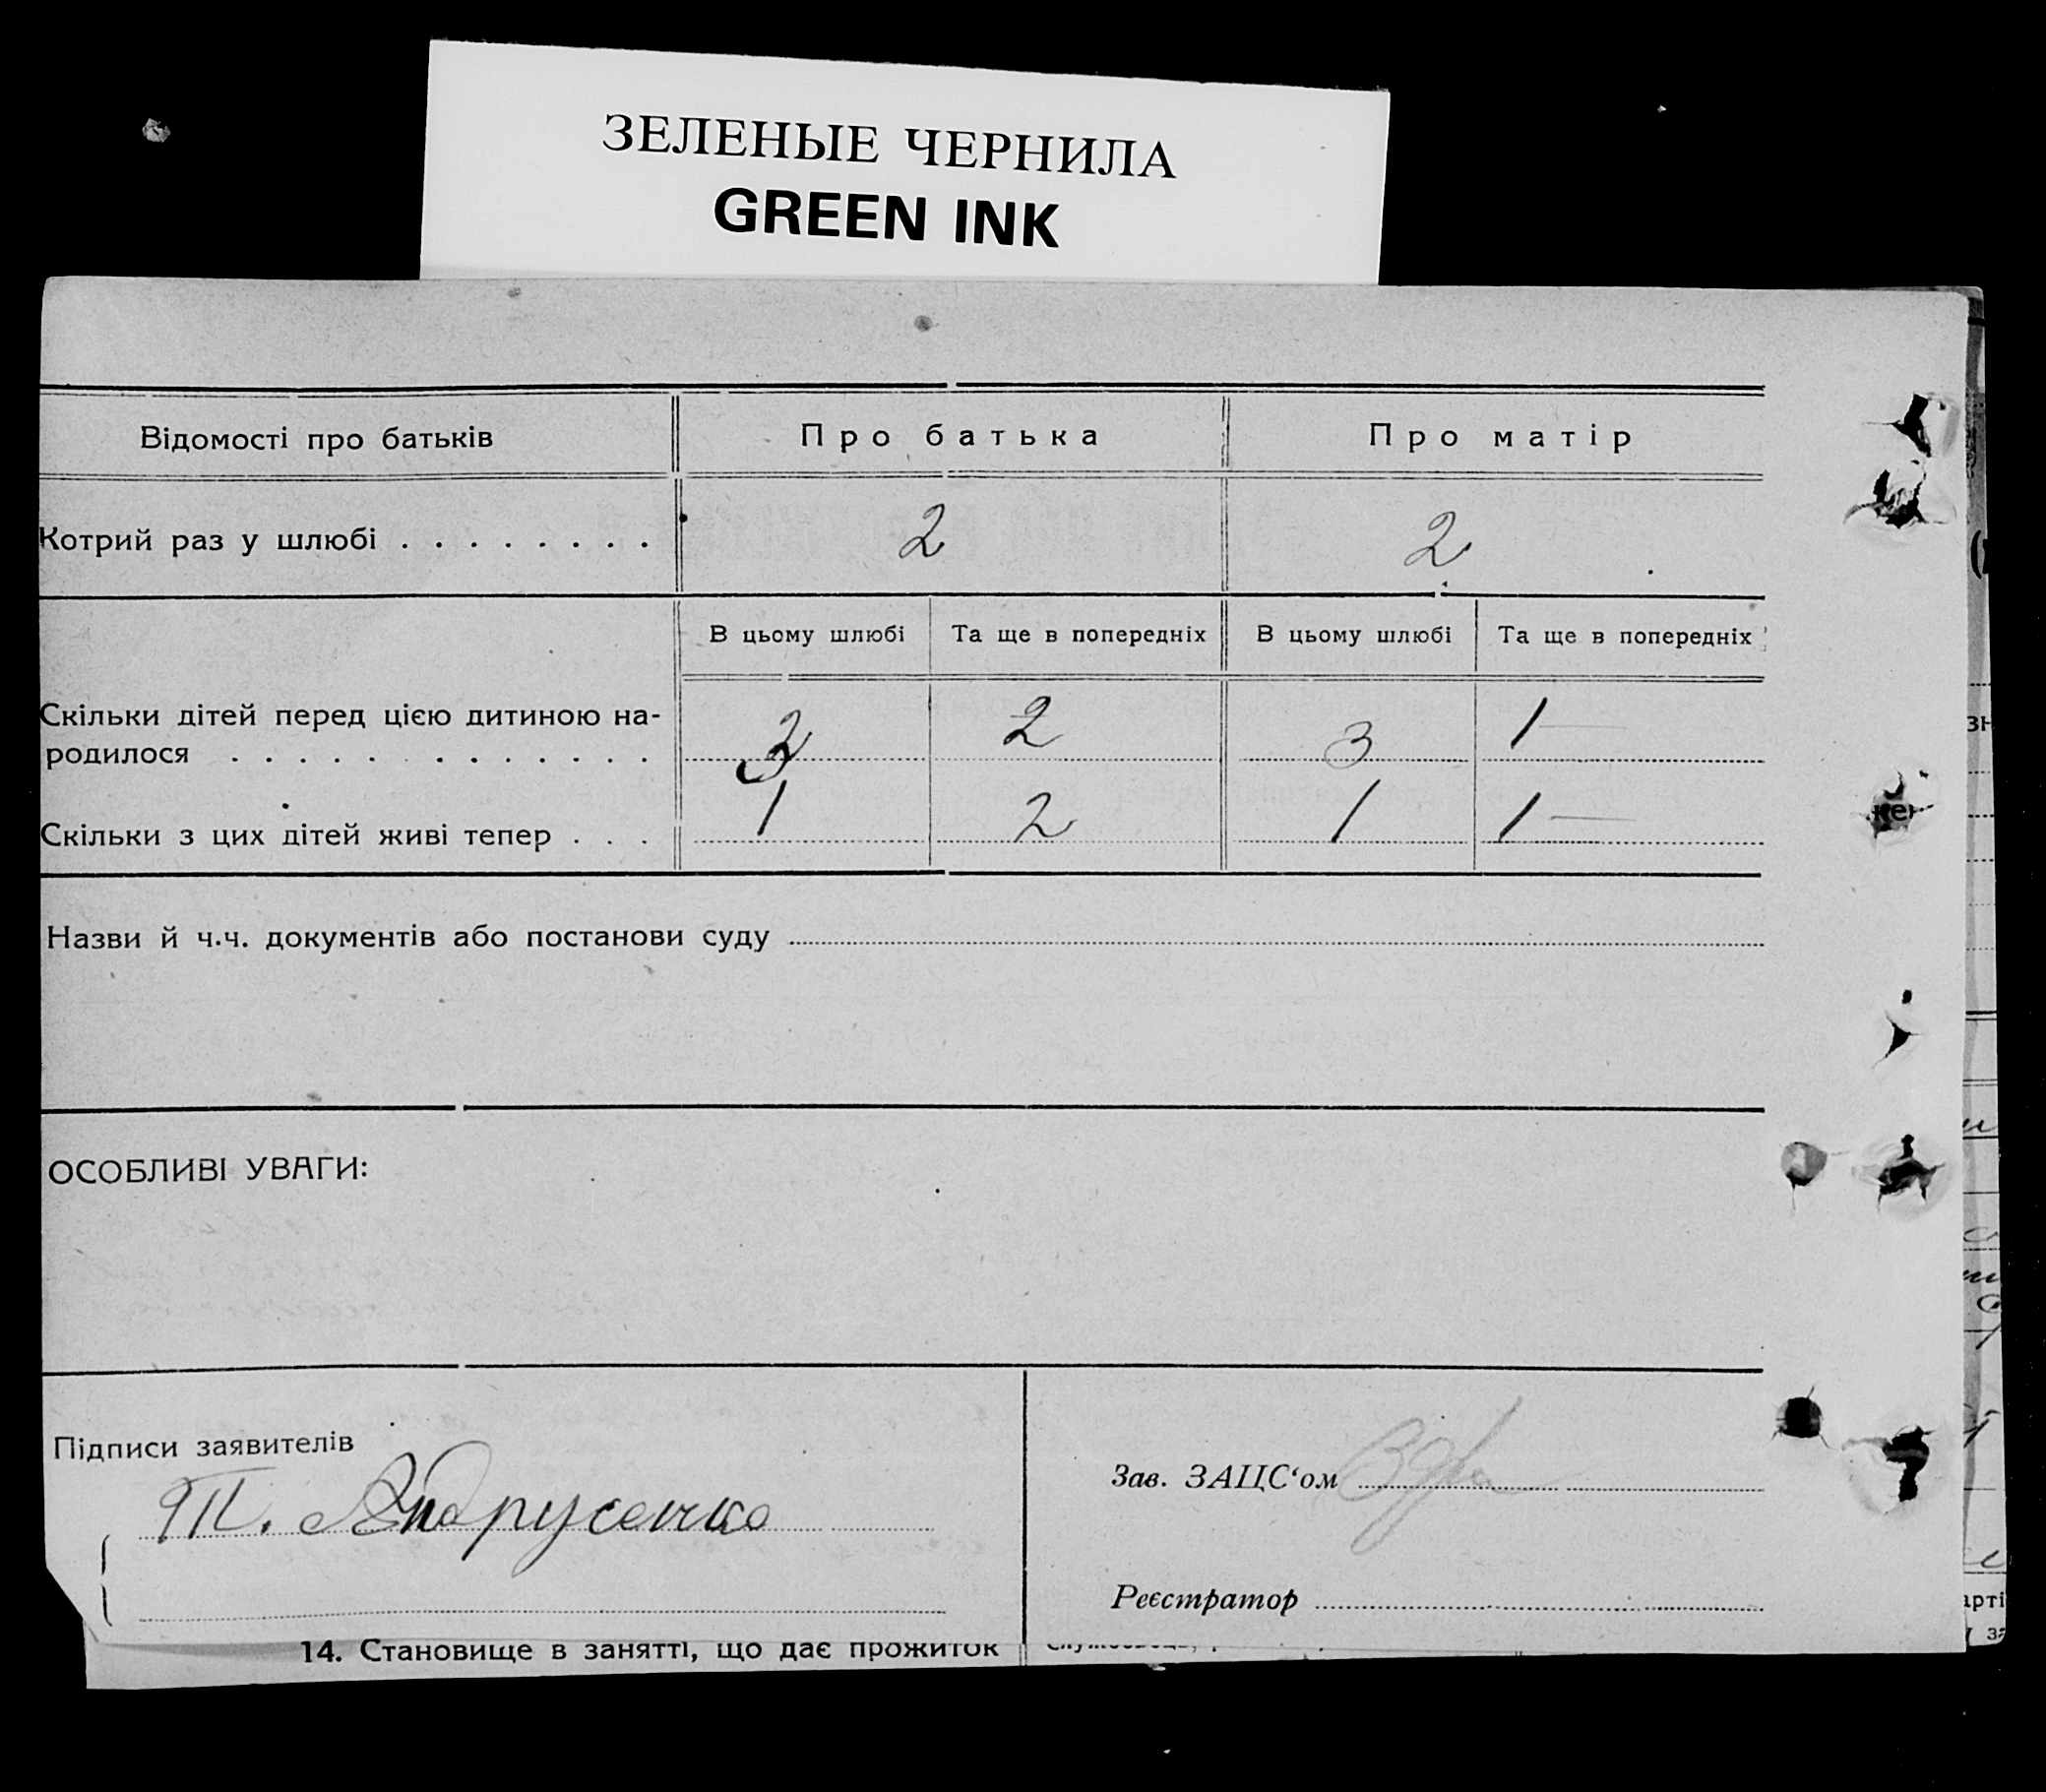 ЗЕЛЕНЫЕ ЧЕРНИЛА
GREEN INK
Відомості про батьків
Про батька
Про матір
Котрий раз у шлюбі . . . . . . . . 2 2
В цьому шлюбі Та ще в попередніх В цьому шлюбі Та ще в попередніх
Скільки дітей перед цією дитиною на-
родилося . . . . . . . . . . . . . 3 2 3 1
Скільки з цих дітей живі тепер . . . 1 2 1 1
Назви й ч.ч. документів або постанови суду
ОСОБЛИВІ УВАГИ:
Підписи заявителів
Т. Андрусенко
Зав. ЗАЦС‘ом
Реєстратор
14. Становище в занятті, що дає прожиток